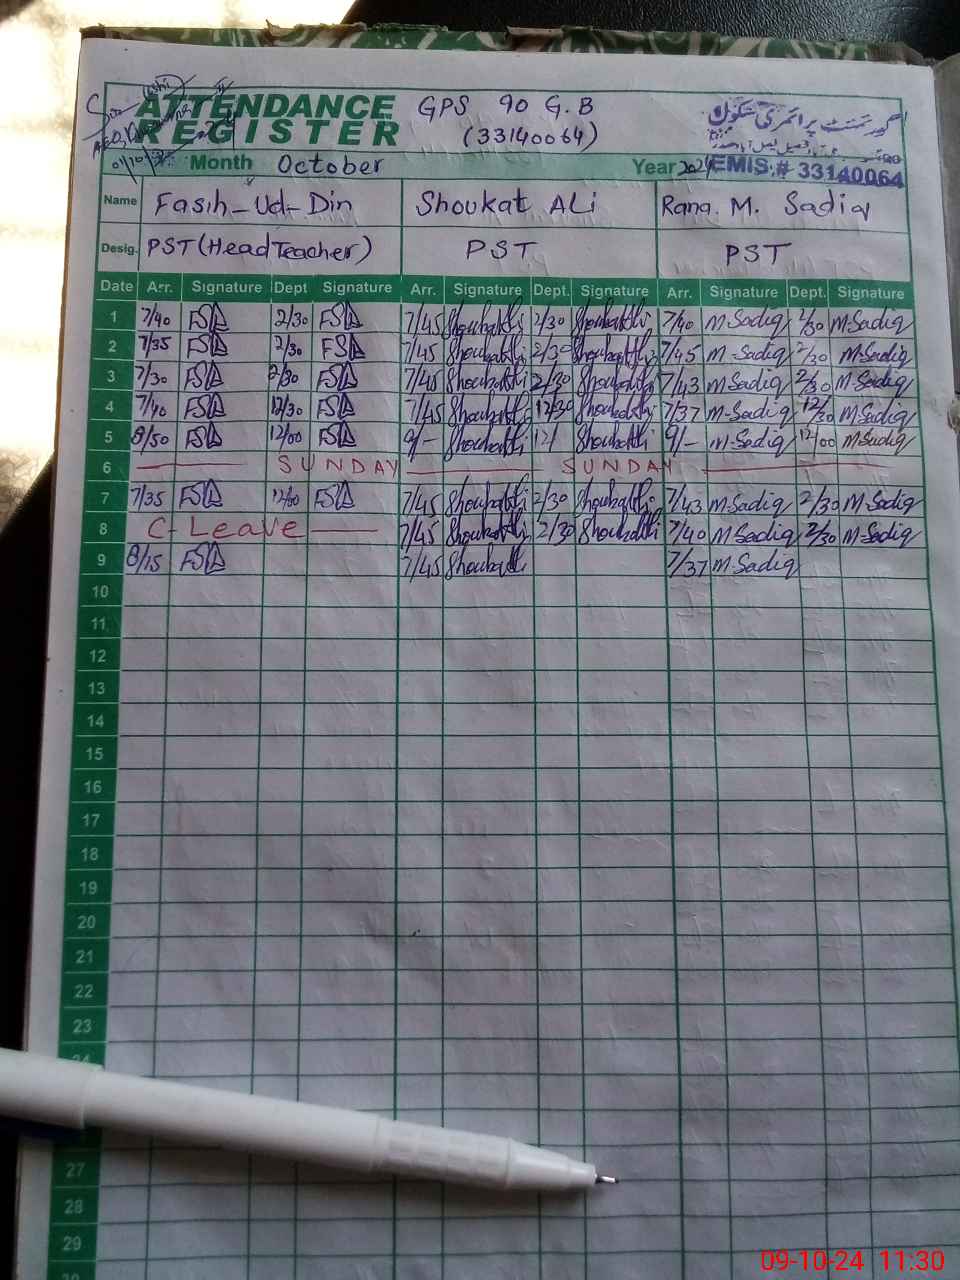 ATTENDANCE REGISTER
GPS 90 G.B
(33140064)
گورنمنٹ پرائمری سکول
01/10/
Month October Year 2024 EMIS:# 33140064
Name Fasih-Ud-Din Shoukat Ali Rana. M. Sadiq
Desig. PST (Head Teacher) PST PST
Date Arr. Signature Dept Signature Arr. Signature Dept. Signature Arr. Signature Dept. Signature
1 7/40 FSD 2/30 FSD 7/45 Shoukat Ali 2/30 Shoukat Ali 7/40 M-Sadiq 2/30 M-Sadiq
2 7/35 FSD 2/30 FSD 7/45 Shoukat Ali 2/30 Shoukat Ali 7/45 M-Sadiq 2/30 M-Sadiq
3 7/30 FSD 2/30 FSD 7/45 Shoukat Ali 2/30 Shoukat Ali 7/43 M-Sadiq 2/30 M-Sadiq
4 7/40 FSD 12/30 FSD 7/45 Shoukat Ali 12/30 Shoukat Ali 7/37 M-Sadiq 12/30 M-Sadiq
5 8/50 FSD 12/00 FSD 9/- Shoukat Ali 12/ Shoukat Ali 9/- M-Sadiq 12/00 M-Sadiq
6 SUNDAY SUNDAY
7 7/35 FSD 12/00 FSD 7/45 Shoukat Ali 2/30 Shoukat Ali 7/43 M-Sadiq 2/30 M-Sadiq
8 C-Leave 7/45 Shoukat Ali 2/30 Shoukat Ali 7/40 M-Sadiq 2/30 M-Sadiq
9 8/15 FSD 7/45 Shoukat Ali 7/37 M-Sadiq
10
11
12
13
14
15
16
17
18
19
20
21
22
23
24
27
28
29
30
09-10-24 11:30